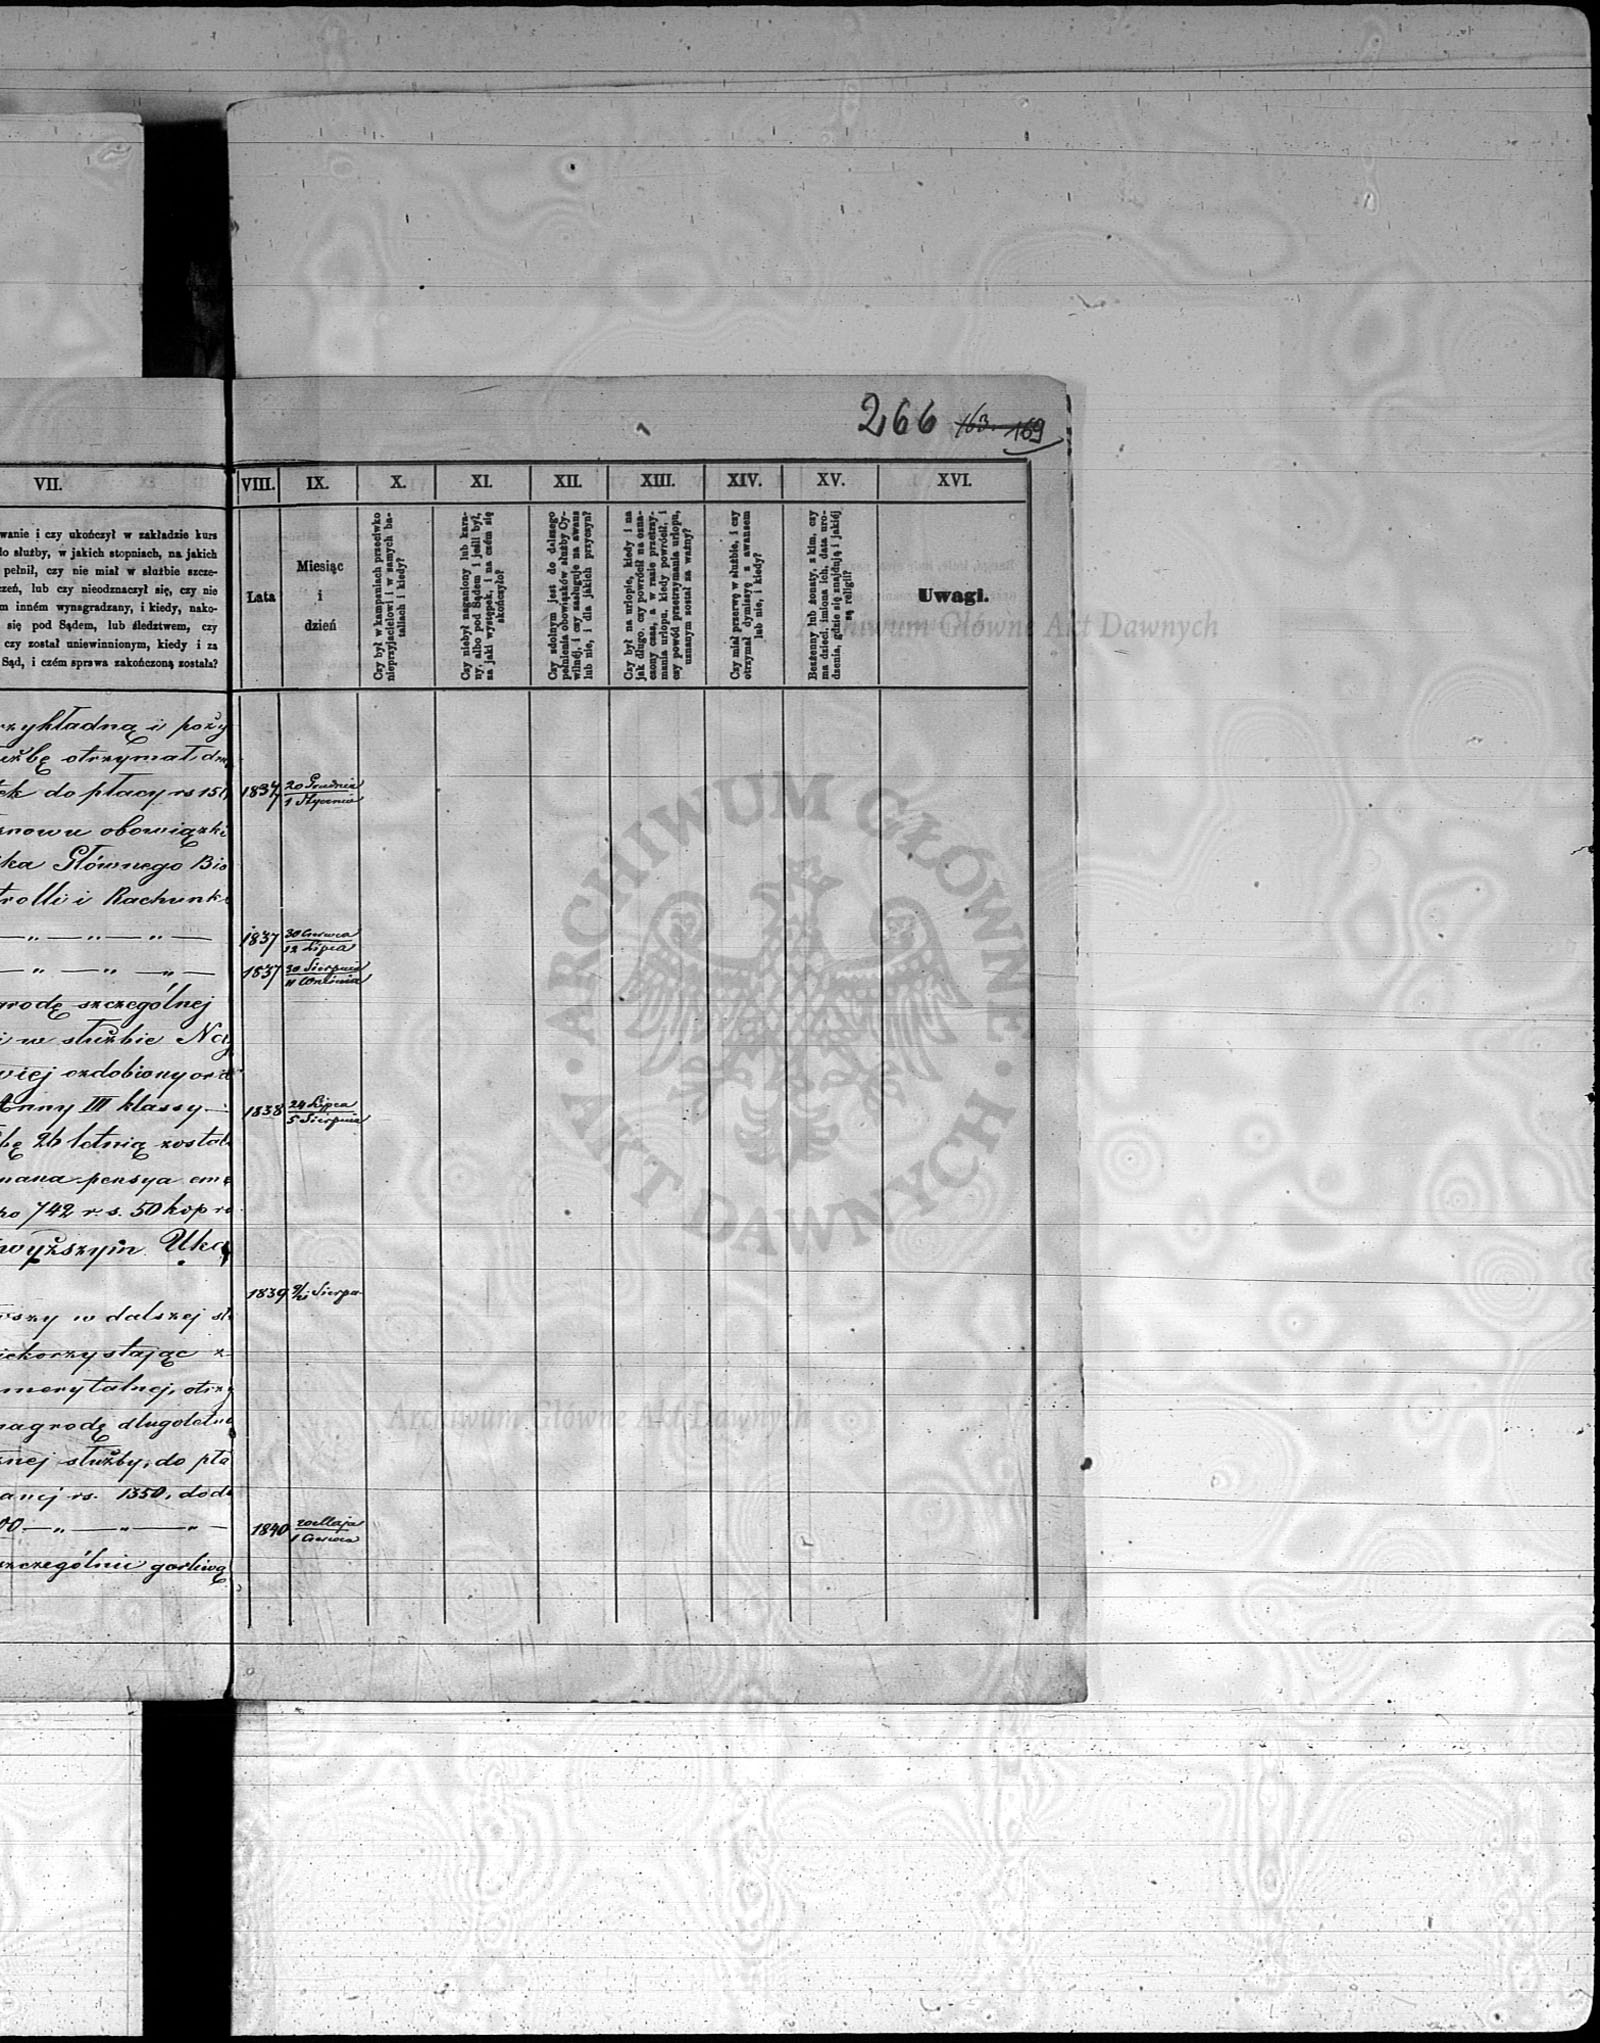 266 163. 169
VII. VIII. IX. X. XI. XII. XIII. XIV. XV. XVI.
wanie i czy ukończył w zakładzie kurs
do służby, w jakich stopniach, na jakich
pełnił, czy nie miał w służbie szcze-
czeń, lub czy nieodznaczył się, czy nie
m inném wynagradzany, i kiedy, nako-
się pod Sądem, lub śledztwem, czy
czy został uniewinnionym, kiedy i za
Sąd, i czém sprawa zakończoną została?
Lata
Miesiąc
i
dzień
Czy był w kampaniach przeciwko
nieprzyjacielowi i w samych ba-
taliach i kiedy?
Czy niebył naganiony lub kara-
ny, albo pod Sądem i jeśli był,
za jaki występek, i na czém się
skończyło?
Czy zdolnym jest do dalszego
pełnienia obowiązków służby Cy-
wilnéj, i czy zasługuje na awans
lub nie, i dla jakich przyczyn?
Czy był na urlopie, kiedy i na
jak długo, czy powrócił na ozna-
czony czas, a w razie przetrzy-
mania urlopu, kiedy powrócił, i
czy powód przetrzymania urlopu,
uznanym został za ważny?
Czy miał przerwę w służbie, i czy
otrzymał dymissyę z awansem
lub nie, i kiedy?
Bezżenny lub żonaty, z kim, czy
ma dzieci, imiona ich, data uro-
dzenia, gdzie się znajdują i jakiéj
są religii?
Uwagi.
rzykładną i poży
użbę otrzymał do
ek do płacy rs 150 1837 20 Grudnia
1 Stycznia
znowu obowiązki
ika Głównego Biu
trolli i Rachunk
— „ — „ — „ — 1837 30 Czerwca
12 Lipca
— „ — „ — „ — 1837 30 Sierpnia
11 Września
grodę szczególnej
i w służbie Naj
wiej ozdobiony ord
Anny III klassy — 1838 24 Lipca
5 Sierpnia
bę 26 letnią został
nana pensya eme
ko 742 r. s. 50 kop ro
jwyższym Uka
1839 9/21 Sierpa
wszy w dalszej słu
iekorzystając z
merytalnej, otrzy
nagrodę długoletni
znej służby, do pła
anej rs. 1350, doda
00 — „ — „ — „ — 1840 20 Maja
1 Czerwca
szczególnie gorliwą
Archiwum Główne Akt Dawnych
ARCHIWUM GŁÓWNE · AKT DAWNYCH ·
Archiwum Główne Akt Dawnych